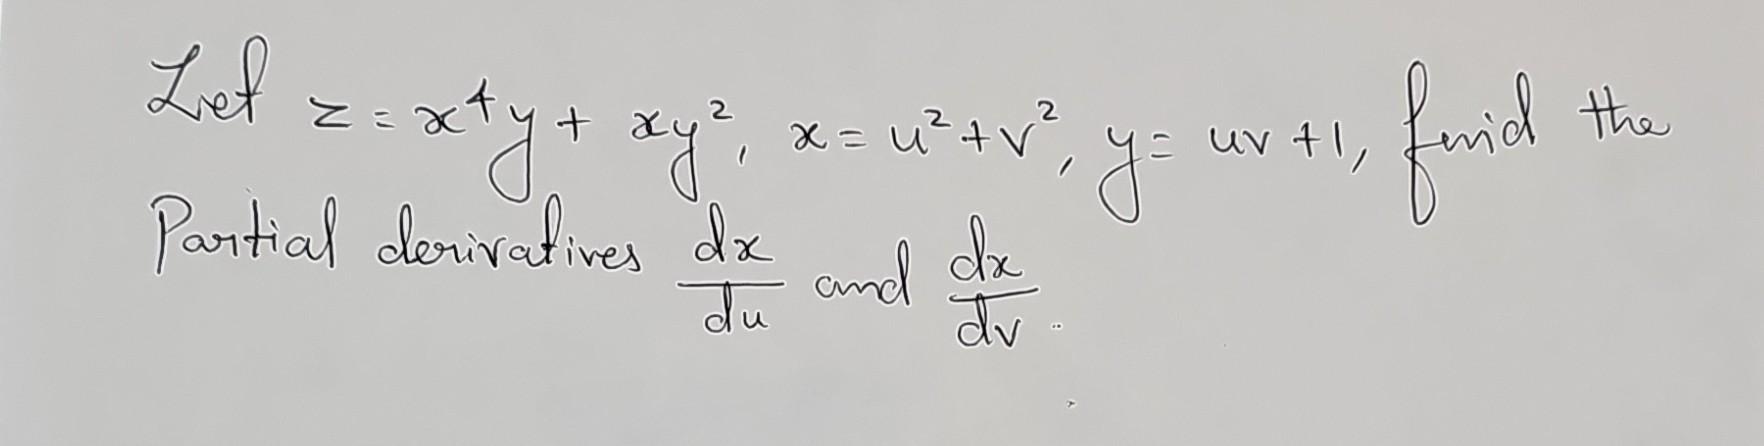 Let z = x⁴y + xy², x = u² + v², y = uv + 1, find the
Partial derivatives dx/du and dx/dv.